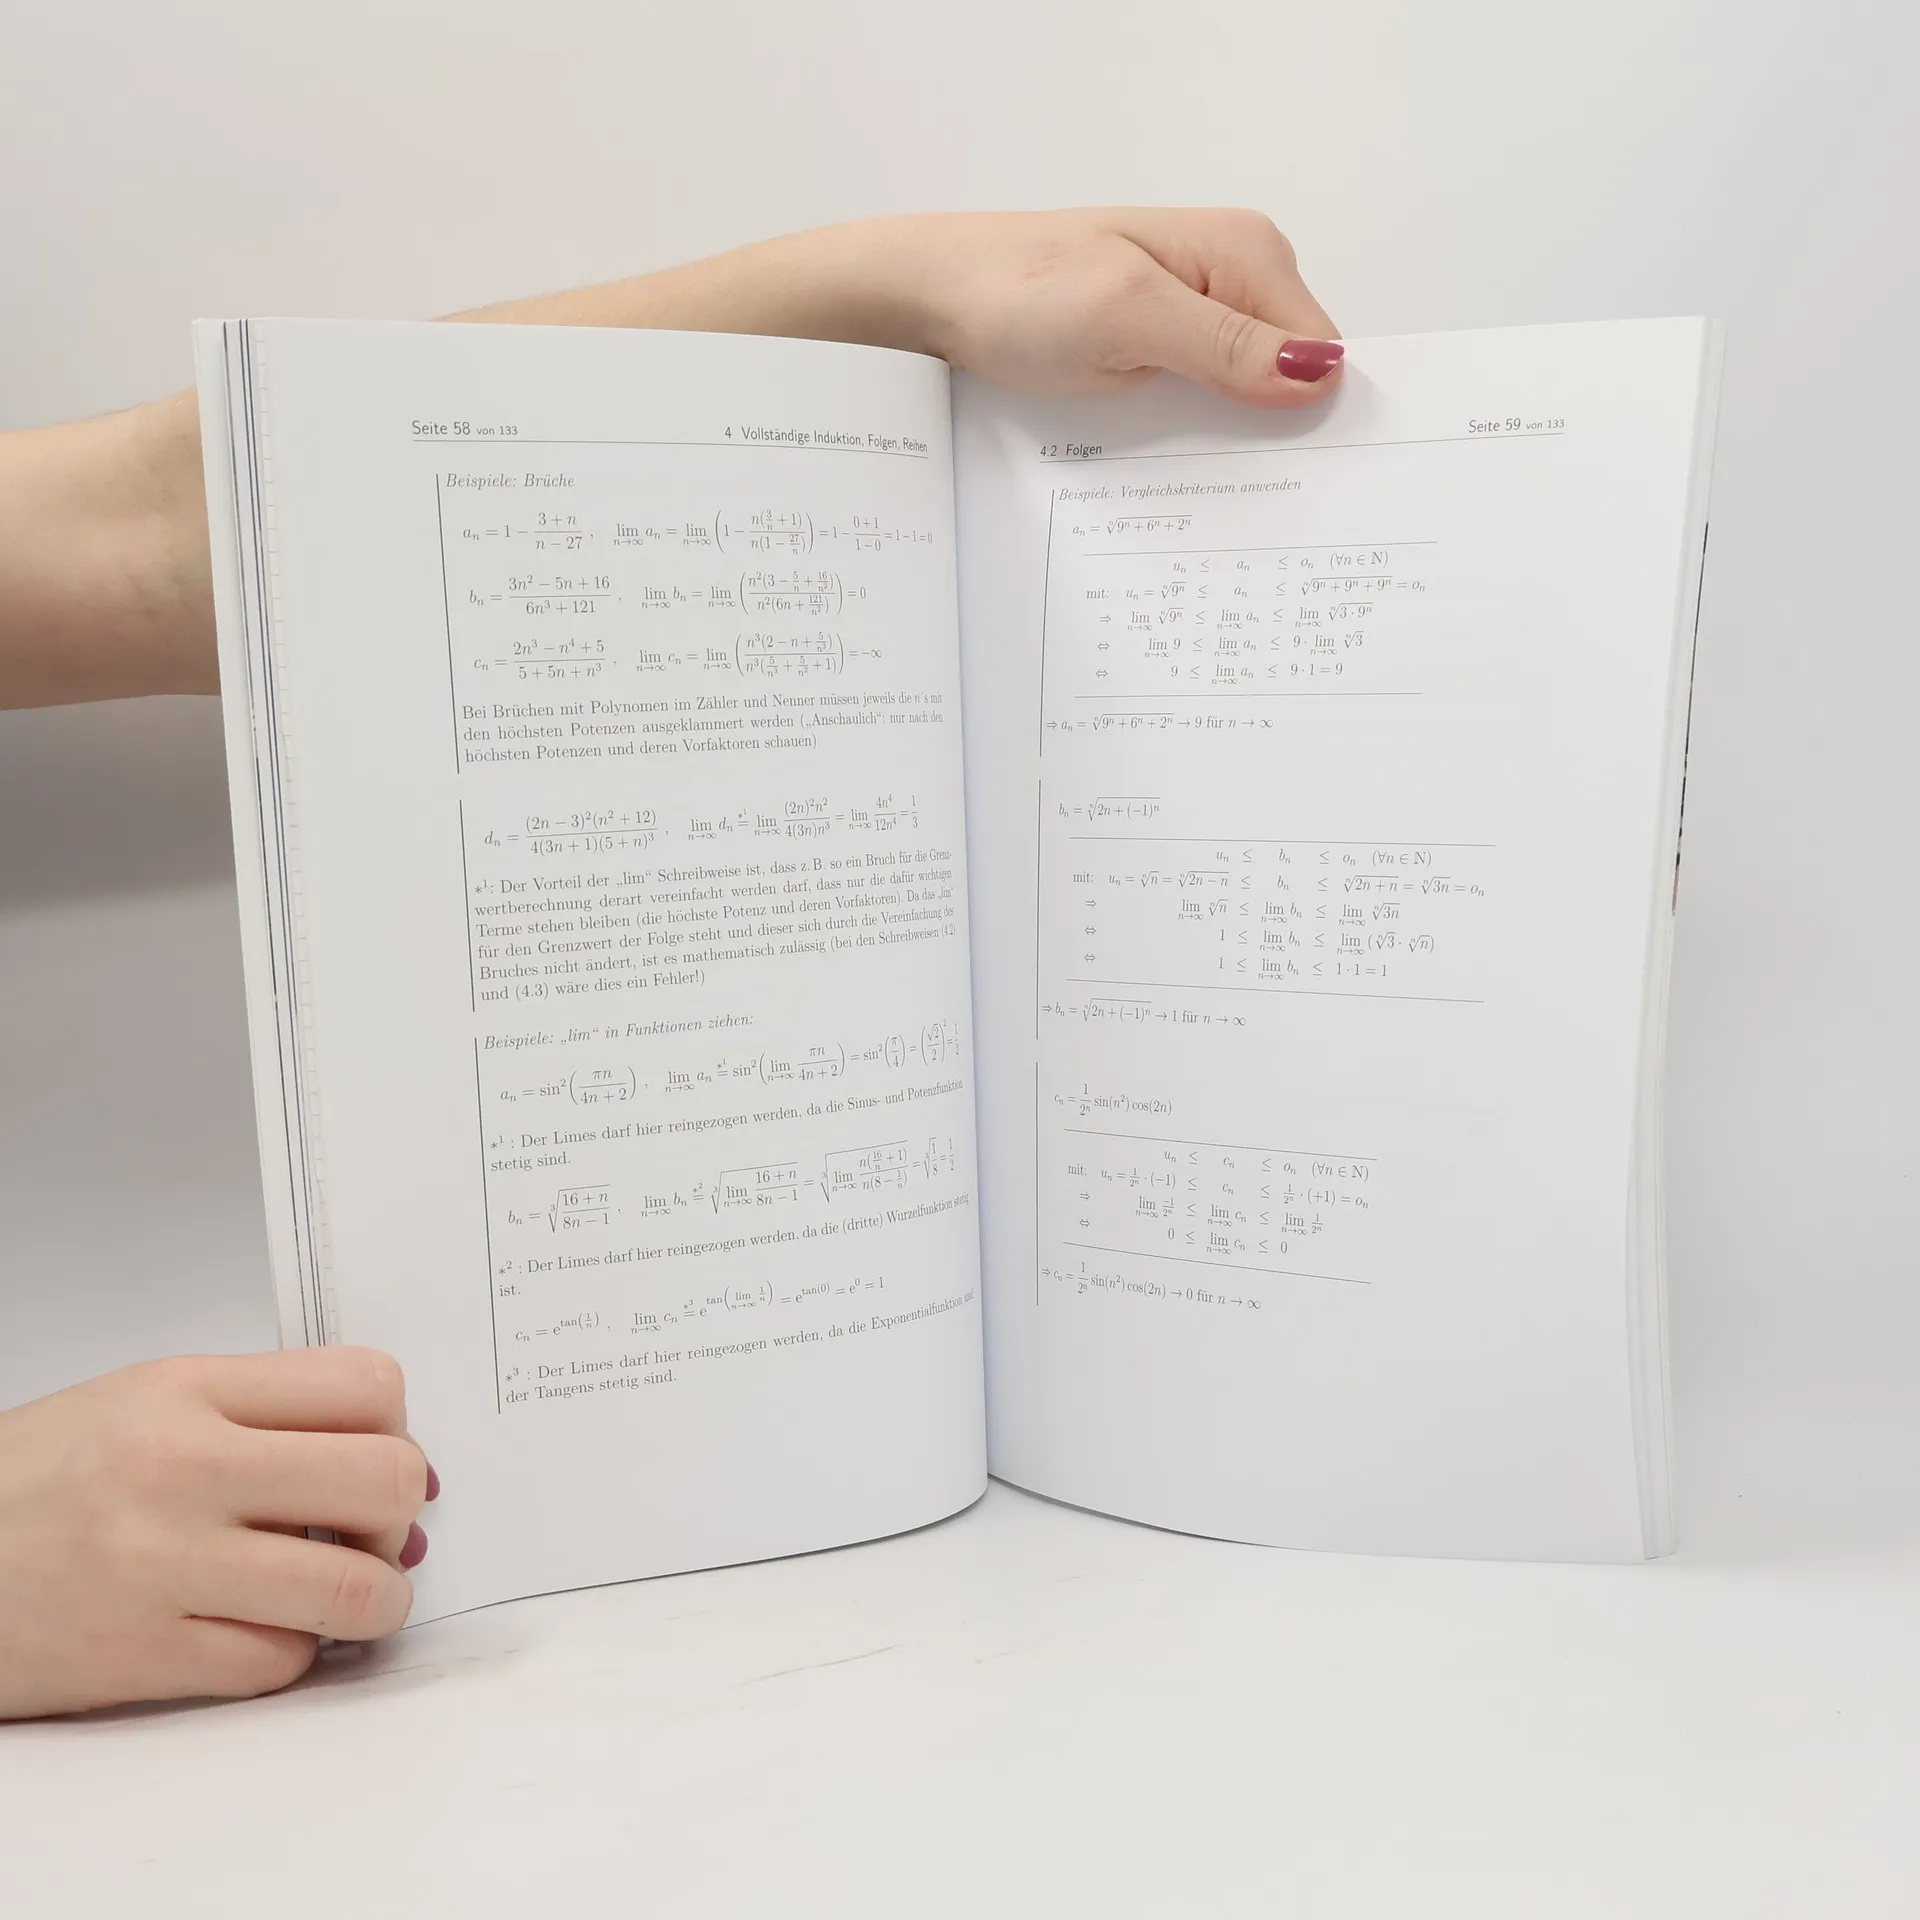 Seite 58 von 133 4 Vollständige Induktion, Folgen, Reihen
Beispiele: Brüche
a_n = 1 − \frac{3 + n}{n − 27} , \lim_{n→∞} a_n = \lim_{n→∞} (1 − \frac{n(\frac{3}{n} + 1)}{n(1 − \frac{27}{n})}) = 1 − \frac{0+1}{1−0} = 1 − 1 = 0
b_n = \frac{3n^2 − 5n + 16}{6n^3 + 121} , \lim_{n→∞} b_n = \lim_{n→∞} (\frac{n^2(3 − \frac{5}{n} + \frac{16}{n^2})}{n^2(6n + \frac{121}{n^2})}) = 0
c_n = \frac{2n^3 − n^4 + 5}{5 + 5n + n^3} , \lim_{n→∞} c_n = \lim_{n→∞} (\frac{n^3(2 − n + \frac{5}{n^3})}{n^3(\frac{5}{n^3} + \frac{5}{n^2} + 1)}) = −∞
Bei Brüchen mit Polynomen im Zähler und Nenner müssen jeweils die n´s mit
den höchsten Potenzen ausgeklammert werden („Anschaulich“: nur nach den
höchsten Potenzen und deren Vorfaktoren schauen)
d_n = \frac{(2n − 3)^2(n^2 + 12)}{4(3n + 1)(5 + n)^3} , \lim_{n→∞} d_n \overset{*^1}{=} \lim_{n→∞} \frac{(2n)^2n^2}{4(3n)n^3} = \lim_{n→∞} \frac{4n^4}{12n^4} = \frac{1}{3}
*^1: Der Vorteil der „lim“ Schreibweise ist, dass z. B. so ein Bruch für die Grenz-
wertberechnung derart vereinfacht werden darf, dass nur die dafür wichtigen
Terme stehen bleiben (die höchste Potenz und deren Vorfaktoren). Da das „lim“
für den Grenzwert der Folge steht und dieser sich durch die Vereinfachung des
Bruches nicht ändert, ist es mathematisch zulässig (bei den Schreibweisen (4.2)
und (4.3) wäre dies ein Fehler!)
Beispiele: „lim“ in Funktionen ziehen:
a_n = sin^2(\frac{πn}{4n + 2}) , \lim_{n→∞} a_n \overset{*^1}{=} sin^2(\lim_{n→∞} \frac{πn}{4n + 2}) = sin^2(\frac{π}{4}) = (\frac{√2}{2})^2 = \frac{1}{2}
*^1 : Der Limes darf hier reingezogen werden, da die Sinus- und Potenzfunktion
stetig sind.
b_n = \sqrt[3]{\frac{16 + n}{8n − 1}} , \lim_{n→∞} b_n \overset{*^2}{=} \sqrt[3]{\lim_{n→∞} \frac{16 + n}{8n − 1}} = \sqrt[3]{\lim_{n→∞} \frac{n(\frac{16}{n} + 1)}{n(8 − \frac{1}{n})}} = \sqrt[3]{\frac{1}{8}} = \frac{1}{2}
*^2 : Der Limes darf hier reingezogen werden, da die (dritte) Wurzelfunktion stetig
ist.
c_n = e^{tan(\frac{1}{n})} , \lim_{n→∞} c_n \overset{*^3}{=} e^{tan(\lim_{n→∞} \frac{1}{n})} = e^{tan(0)} = e^0 = 1
*^3 : Der Limes darf hier reingezogen werden, da die Exponentialfunktion und
der Tangens stetig sind.
4.2 Folgen Seite 59 von 133
Beispiele: Vergleichskriterium anwenden
a_n = \sqrt[n]{9^n + 6^n + 2^n}
u_n ≤ a_n ≤ o_n (∀n ∈ ℕ)
mit: u_n = \sqrt[n]{9^n} ≤ a_n ≤ \sqrt[n]{9^n + 9^n + 9^n} = o_n
⇒ \lim_{n→∞} \sqrt[n]{9^n} ≤ \lim_{n→∞} a_n ≤ \lim_{n→∞} \sqrt[n]{3 · 9^n}
⇔ \lim_{n→∞} 9 ≤ \lim_{n→∞} a_n ≤ 9 · \lim_{n→∞} \sqrt[n]{3}
⇔ 9 ≤ \lim_{n→∞} a_n ≤ 9 · 1 = 9
⇒ a_n = \sqrt[n]{9^n + 6^n + 2^n} → 9 für n → ∞
b_n = \sqrt[n]{2n + (−1)^n}
u_n ≤ b_n ≤ o_n (∀n ∈ ℕ)
mit: u_n = \sqrt[n]{n} = \sqrt[n]{2n − n} ≤ b_n ≤ \sqrt[n]{2n + n} = \sqrt[n]{3n} = o_n
⇒ \lim_{n→∞} \sqrt[n]{n} ≤ \lim_{n→∞} b_n ≤ \lim_{n→∞} \sqrt[n]{3n}
⇔ 1 ≤ \lim_{n→∞} b_n ≤ \lim_{n→∞} (\sqrt[n]{3} · \sqrt[n]{n})
⇔ 1 ≤ \lim_{n→∞} b_n ≤ 1 · 1 = 1
⇒ b_n = \sqrt[n]{2n + (−1)^n} → 1 für n → ∞
c_n = \frac{1}{2^n} sin(n^2) cos(2n)
u_n ≤ c_n ≤ o_n (∀n ∈ ℕ)
mit: u_n = \frac{1}{2^n} · (−1) ≤ c_n ≤ \frac{1}{2^n} · (+1) = o_n
⇒ \lim_{n→∞} \frac{−1}{2^n} ≤ \lim_{n→∞} c_n ≤ \lim_{n→∞} \frac{1}{2^n}
⇔ 0 ≤ \lim_{n→∞} c_n ≤ 0
⇒ c_n = \frac{1}{2^n} sin(n^2) cos(2n) → 0 für n → ∞